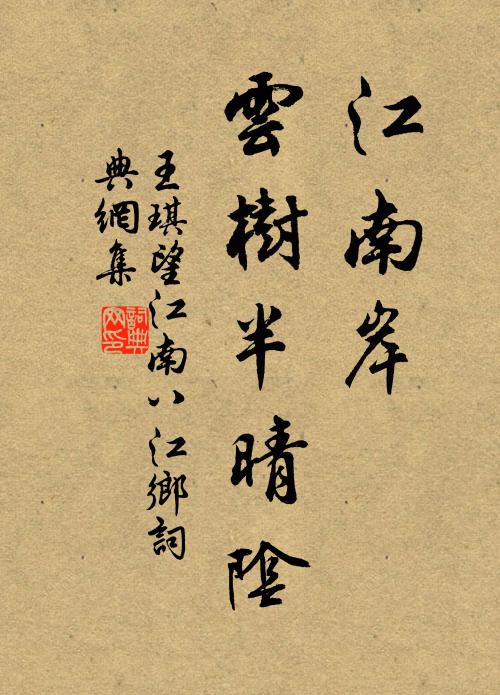 江南岸
雲樹半晴陰
王琪望江南八江鄉詞
典網集
詞典
网印